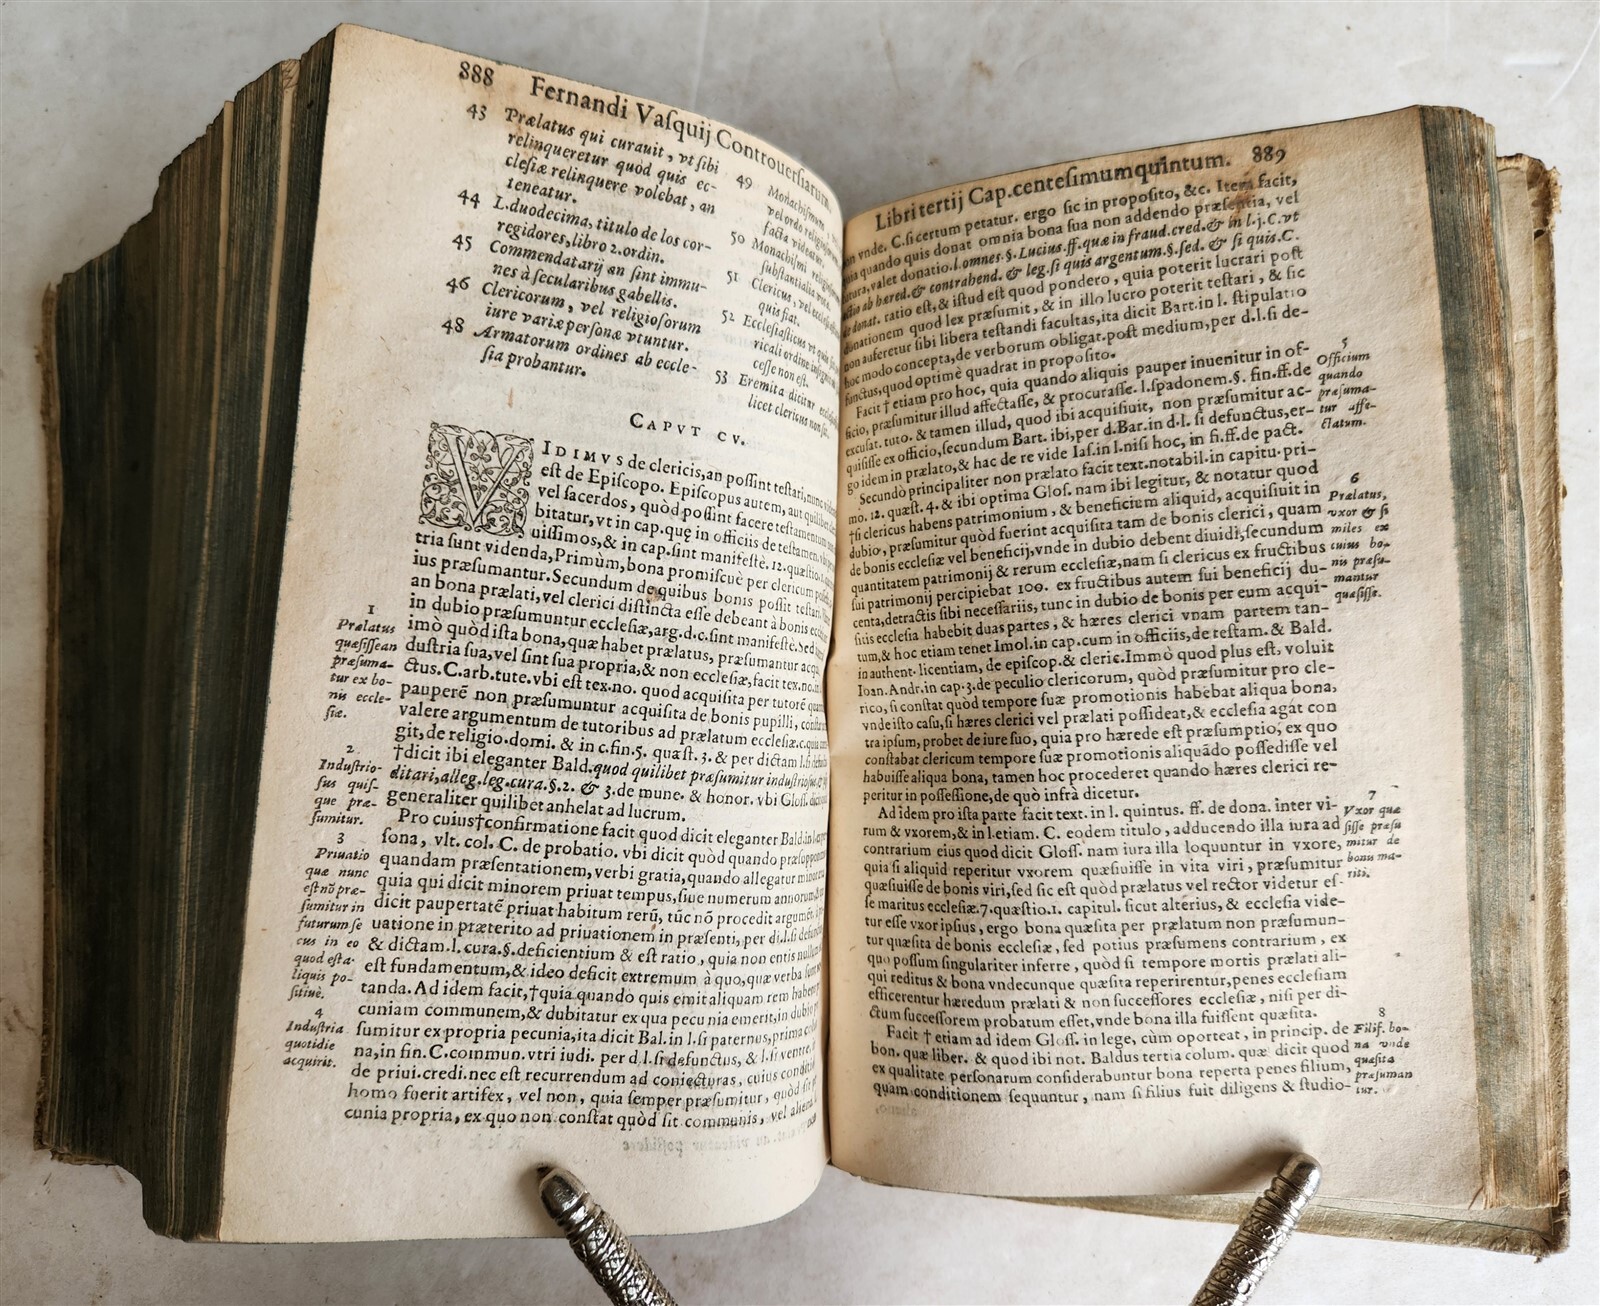 888 Fernandi Vaſquij Controuerſiarum,
43 Prælatus qui curauit, vt ſibi
relinqueretur quòd quis ec-
cleſiæ relinquere volebat, an
teneatur.
44 L. duodecima, titulo de los cor-
regidores, libro 2. ordin.
45 Commendatarij an ſint immu-
nes à ſecularibus gabellis.
46 Clericorum, vel religioſorum
iure variæ perſonæ vtuntur.
48 Armatorum ordines ab eccle-
ſia probantur.
49 Monachiſmum
vel ordo religioſorum
facta videatur.
50 Monachiſmi religioſorum
ſubſtantialia
51 Clericus, vel
quis fiat.
52 Eccleſiaſticus vt quis
ricali ordine
ceſſe non eſt.
53 Eremita dicitur
licet clericus non ſit.
CAPVT CV.
VIDIMVS de clericis, an poſſint teſtari, nunc
eſt de Epiſcopo. Epiſcopus autem, aut quilibet
vel ſacerdos, quòd poſſint facere teſtamentum
bitatur, vt in cap. quę in officiis de teſtamen.
uiſſimos, & in cap. ſint manifeſtè. 12. quæſtio. 1.
tria ſunt videnda, Primùm, bona promiſcuè per clericum
ius præſumantur. Secundum de quibus bonis poſſit teſtari.
an bona prælati, vel clerici diſtincta eſſe debeant à bonis
in dubio præſumuntur eccleſiæ, arg. d. c. ſint manifeſtè. Sed
imò quòd iſta bona, quæ habet prælatus, præſumantur
duſtria ſua, vel ſint ſua propria, & non eccleſiæ, facit tex. no. in
ctus. C. arb. tute. vbi eſt tex. no. quod acquiſita per tutorẽ
pauperẽ non præſumuntur acquiſita de bonis pupilli,
valere argumentum de tutoribus ad prælatum eccleſiæ. c. quia
git, de religio. domi. & in c. fin. 5. quæſt. 3. & per dictam l. ſi
†dicit ibi eleganter Bald. quod quilibet præſumitur induſtrioſus,
ditari, alleg. leg. cura. §. 2. & 3. de mune. & honor. vbi Gloſſ.
generaliter quilibet anhelat ad lucrum.
Pro cuius†confirmatione facit quod dicit eleganter Bald. in l.
ſona, vlt. col. C. de probatio. vbi dicit quòd quando
quandam præſentationem, verbi gratia, quando allegatur
quia qui dicit minorem priuat tempus, ſiue numerum annorum,
dicit paupertatẽ priuat habitum rerũ, tũc nõ procedit
uatione in præterito ad priuationem in præſenti, per d. l. ſi
& dictam. l. cura. §. deficientium & eſt ratio, quia non entis
eſt fundamentum, & ideo deficit extremum à quo, quæ verba
tanda. Ad idem facit, †quia quando quis emit aliquam rem
cuniam communem, & dubitatur ex qua pecunia emerit, in dubio
ſumitur ex propria pecunia, ita dicit Bal. in l. ſi paternus, prima
na, in fin. C. commun. vtri iudi. per d. l. ſi defunctus, & l. ſi ventre.
de priui. credi. nec eſt recurrendum ad coniecturas, cuius
homo fuerit artifex, vel non, quia ſemper præſumitur, quòd ſit
cunia propria, ex quo non conſtat quòd ſit communis, vel
1
Prælatus
quæſiſſe an
præſuma-
tur ex bo-
nis eccle-
ſiæ.
2
Induſtrio-
ſus quiſ-
que præ-
ſumitur.
3
Priuatio
quæ nunc
eſt nõ præ-
ſumitur in
futurum ſe
cus in eo
quod eſt a-
liquis po-
ſitiuè.
4
Induſtria
quotidie
acquirit.
Libri tertij Cap. centeſimumquintum. 889
vnde. C. ſi certum petatur. ergo ſic in propoſito, &c. Item facit,
quia quando quis donat omnia bona ſua non addendo præſentia, vel
futura, valet donatio. l. omnes. §. Lucius. ff. quæ in fraud. cred. & in l. j. C. vt
actio ab hæred. & contrahend. & leg. ſi quis argentum. §. ſed. & ſi quis. C.
de donat. ratio eſt, & iſtud eſt quod pondero, quia poterit lucrari poſt
donationem quod lex præſumit, & in illo lucro poterit teſtari, & ſic
non auferetur ſibi libera teſtandi facultas, ita dicit Bart. in l. ſtipulatio
hoc modo concepta, de verborum obligat. poſt medium, per d. l. ſi de-
functus, quod optimè quadrat in propoſito.
Facit † etiam pro hoc, quia quando aliquis pauper inuenitur in of-
ficio, præſumitur illud affectaſſe, & procuraſſe. l. ſpadonem. §. fin. ff. de
excuſat. tuto. & tamen illud, quod ibi acquiſiuit, non præſumitur ac-
quiſiſſe ex officio, ſecundum Bart. ibi, per d. Bar. in d. l. ſi defunctus, er-
go idem in prælato, & hac de re vide Iaſ. in l. niſi hoc, in fi. ff. de pact.
Secundò principaliter non prælato facit text. notabil. in capitu. pri-
mo. 12. quæſt. 4. & ibi optima Gloſ. nam ibi legitur, & notatur quod
†ſi clericus habens patrimonium, & beneficium aliquid, acquiſiuit in
dubio, præſumitur quòd fuerint acquiſita tam de bonis clerici, quam
de bonis eccleſiæ vel beneficij, vnde in dubio debent diuidi, ſecundum
quantitatem patrimonij & rerum eccleſiæ, nam ſi clericus ex fructibus
ſui patrimonij percipiebat 100. ex fructibus autem ſui beneficij du-
centa, detractis ſibi neceſſariis, tunc in dubio de bonis per eum acqui-
ſitis eccleſia habebit duas partes, & hæres clerici vnam partem tan-
tum, & hoc etiam tenet Imol. in cap. cum in officiis, de teſtam. & Bald.
in authent. licentiam, de epiſcop. & cleric. Immò quod plus eſt, voluit
Ioan. Andr. in cap. 3. de peculio clericorum, quòd præſumitur pro cle-
rico, ſi conſtat quòd tempore ſuæ promotionis habebat aliqua bona,
vnde iſto caſu, ſi hæres clerici vel prælati poſſideat, & eccleſia agat con
tra ipſum, probet de iure ſuo, quia pro hærede eſt præſumptio, ex quo
conſtabat clericum tempore ſuæ promotionis aliquãdo poſſediſſe vel
habuiſſe aliqua bona, tamen hoc procederet quando hæres clerici re-
peritur in poſſeſſione, de quò infrà dicetur.
Ad idem pro iſta parte facit text. in l. quintus. ff. de dona. inter vi-
rum & vxorem, & in l. etiam. C. eodem titulo, adducendo illa iura ad
contrarium eius quod dicit Gloſſ. nam iura illa loquuntur in vxore,
quia ſi aliquid reperitur vxorem quæſiuiſſe in vita viri, præſumitur
quæſiuiſſe de bonis viri, ſed ſic eſt quòd prælatus vel rector videtur eſ-
ſe maritus eccleſiæ. 7. quæſtio. 1. capitul. ſicut alterius, & eccleſia vide-
tur eſſe vxor ipſius, ergo bona quæſita per prælatum non præſumun-
tur quæſita de bonis eccleſiæ, ſed potius præſumens contrarium, ex
quo poſſum ſingulariter inferre, quòd ſi tempore mortis prælati ali-
qui reditus & bona vndecunque quæſita reperirentur, penes eccleſiam
efficerentur hæredum prælati & non ſucceſſores eccleſiæ, niſi per di-
ctum ſucceſſorem probatum eſſet, vnde bona illa fuiſſent quæſita.
Facit † etiam ad idem Gloſſ. in lege, cùm oporteat, in princip. de
bon. quæ liber. & quod ibi not. Baldus tertia colum. quæ dicit quod
ex qualitate perſonarum conſiderabuntur bona reperta penes filium,
quam conditionem ſequuntur, nam ſi filius fuit diligens & ſtudio-
5
Officium
quando
præſuma-
tur affe-
ctatum.
6
Prælatus,
vxor & ſi
miles ex
cuius bo-
nis præſu-
mantur
quæſiſſe.
7
Vxor quæ
ſiſſe præſu
mitur de
bonis ma-
riti.
8
Filiſ. bo-
na vnde
quæſita
præſuman
tur.